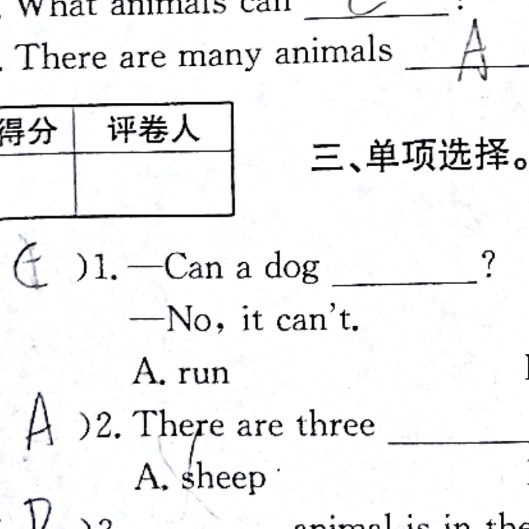 What animals can ______ ?
C
. There are many animals ______
A
得分 评卷人
三、单项选择。
C )1. —Can a dog ______ ?
—No, it can't.
A. run
A )2. There are three ______
A. sheep
B )3. ______ animal is in the